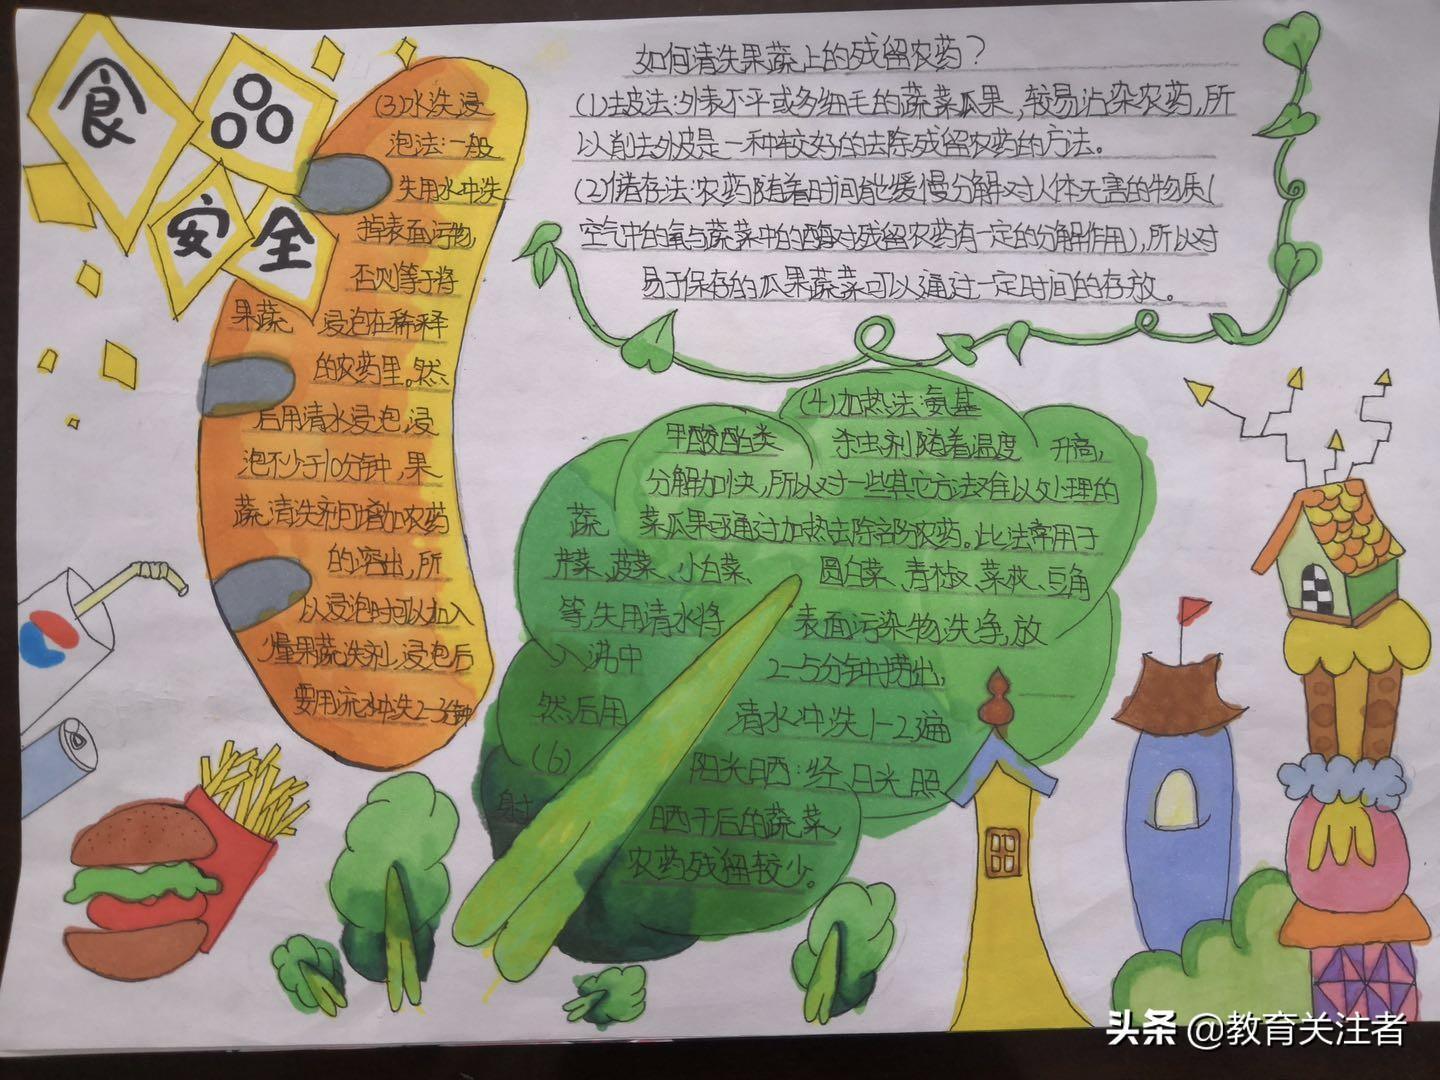 食品
安全
如何清洗果蔬上的残留农药？
(1)去皮法:外表不平或多细毛的蔬菜瓜果,较易沾染农药,所
以削去外皮是一种较好的去除残留农药的方法。
(2)储存法:农药随着时间能缓慢分解对人体无害的物质(
空气中的氧与蔬菜中的酶对残留农药有一定的分解作用),所以对
易于保存的瓜果蔬菜可以通过一定时间的存放。
(3)水洗浸
泡法:一般
先用水冲洗
掉表面污物,
否则等于将
果蔬 浸泡在稀释
的农药里。然
后用清水浸泡,浸
泡不少于10分钟,果
蔬清洗剂可增加农药
的溶出,所
以浸泡时可以加入
量果蔬洗剂,浸泡后
要用流水冲洗2-3分钟
(4)加热法:氨基
甲酸酯类 杀虫剂随着温度 升高,
分解加快,所以对一些其它方法难以处理的
蔬 菜瓜果可通过加热去除部分农药。此法常用于
芹菜、菠菜、小白菜、 圆白菜、青椒、菜花、豆角
等,先用清水将 表面污染物洗净,放
入沸中 2-5分钟捞出,
然后用 清水冲洗1-2遍
(6) 阳光晒:经日光照
射 晒干后的蔬菜
农药残留较少。
头条 @教育关注者